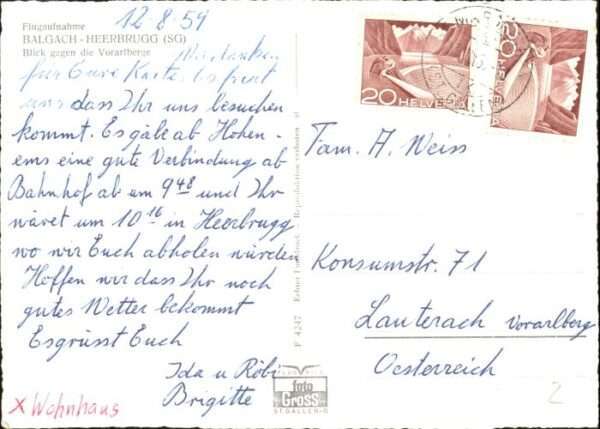 12.8.59
Flugaufnahme
BALGACH-HEERBRUGG (SG)
Blick gegen die Vorarlberge
Wir danken
für Eure Karte. Es freut
uns dass Ihr uns besuchen
kommt. Es gäbe ab Hohen-
ems eine gute Verbindung ab
Bahnhof ab um 9 48 und Ihr
wäret um 10 16 in Heerbrugg
wo wir Euch abholen würden
Hoffen wir dass Ihr noch
gutes Wetter bekommt
Es grüsst Euch
Ida u Röbi
Brigitte
x Wohnhaus
20 HELVETIA
20 HELVETIA
Fam. A. Weiss
Konsumstr. 71
Lauterach Vorarlberg
Oesterreich
2
F 4247 Reproduktion verboten
foto
Gross
ST. GALLEN-O